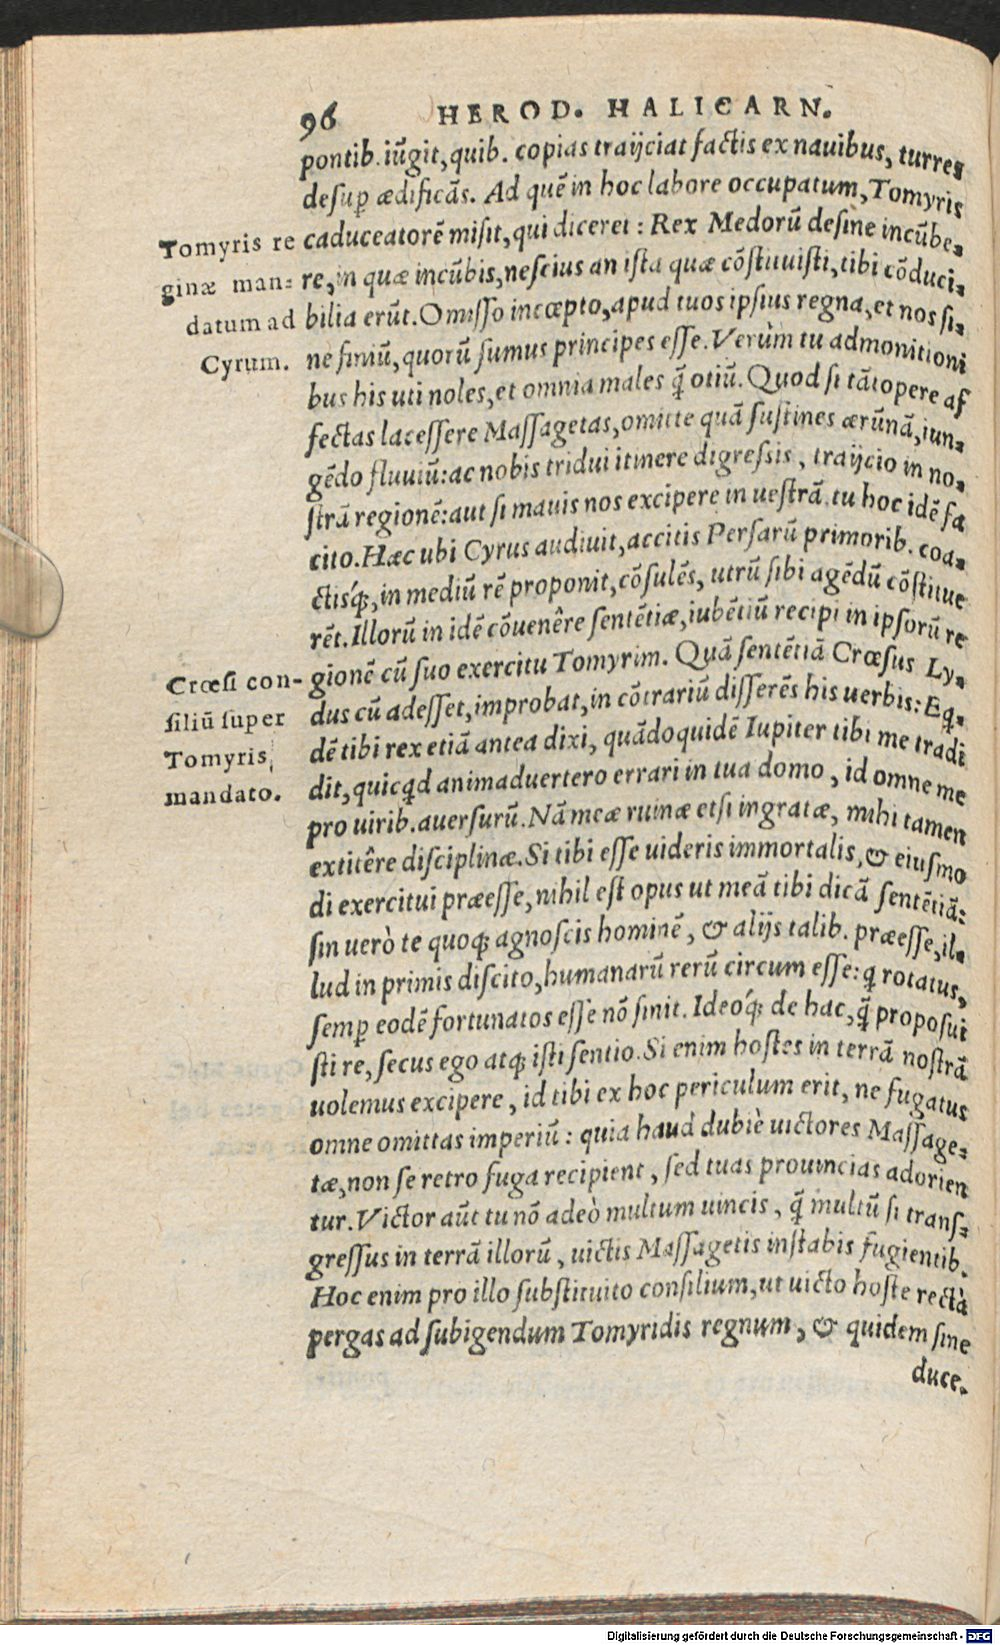 96 HEROD. HALICARN.
pontib. iũgit, quib. copias traijciat factis ex nauibus, turres
desuꝑ ædificãs. Ad quẽ in hoc labore occupatum, Tomyris
Tomyris re
caduceatorẽ misit, qui diceret: Rex Medorũ desine incũbe=
ginæ man=
re, in quæ incũbis, nescius an ista quæ cõstituisti, tibi cõduci=
datum ad
bilia erũt. Omisso incœpto, apud tuos ipsius regna, et nos si=
Cyrum.
ne finiũ, quorũ sumus principes esse. Verùm tu admonitioni
bus his uti noles, et omnia males q̃ otiũ. Quod si tãtopere af
fectas lacessere Massagetas, omitte quã sustines ærũnã, iun=
gẽdo fluuiũ: ac nobis tridui itinere digressis, traijcio in no=
strã regionẽ: aut si mauis nos excipere in uestrã. tu hoc idẽ fa
cito. Hæc ubi Cyrus audiuit, accitis Persarũ primorib. coa=
ctisq́;, in mediũ rẽ proponit, cõsulẽs, utrũ sibi agẽdũ cõstitue
rẽt. Illorũ in idẽ cõuenêre sentẽtiæ, iubẽtiũ recipi in ipsorũ re
Crœsi con-
gionẽ cũ suo exercitu Tomyrim. Quã sentẽtiã Crœsus Ly=
siliũ super
dus cũ adesset, improbat, in cõtrariũ disserẽs his uerbis: Eq=
Tomyris
dẽ tibi rex etiã antea dixi, quãdoquidẽ Iupiter tibi me tradi
mandato.
dit, quicq̇d animaduertero errari in tua domo, id omne me
pro uirib. auersurũ. Nã meæ ruinæ etsi ingratæ, mihi tamen
extitêre disciplinæ. Si tibi esse uideris immortalis, & eiusmo
di exercitui præesse, nihil est opus ut meã tibi dicã sentẽtiã:
sin uerò te quoq; agnoscis hominẽ, & alijs talib. præesse, il=
lud in primis discito, humanarũ rerũ circum esse: q̇ rotatus,
semꝑ eodẽ fortunatos esse nõ sinit. Ideoq́; de hac, q̃ proposui
sti re, secus ego atq; isti sentio. Si enim hostes in terrã nostrã
uolemus excipere, id tibi ex hoc periculum erit, ne fugatus
omne omittas imperiũ: quia haud dubiè uictores Massage=
tæ, non se retro fuga recipient, sed tuas prouincias adorien
tur. Victor aũt tu nõ adeò multum uincis, q̃ multũ si trans=
gressus in terrã illorũ, uictis Massagetis instabis fugientib.
Hoc enim pro illo substituito consilium, ut uicto hoste rectà
pergas ad subigendum Tomyridis regnum, & quidem sine
duce.
Digitalisierung gefördert durch die Deutsche Forschungsgemeinschaft - DFG